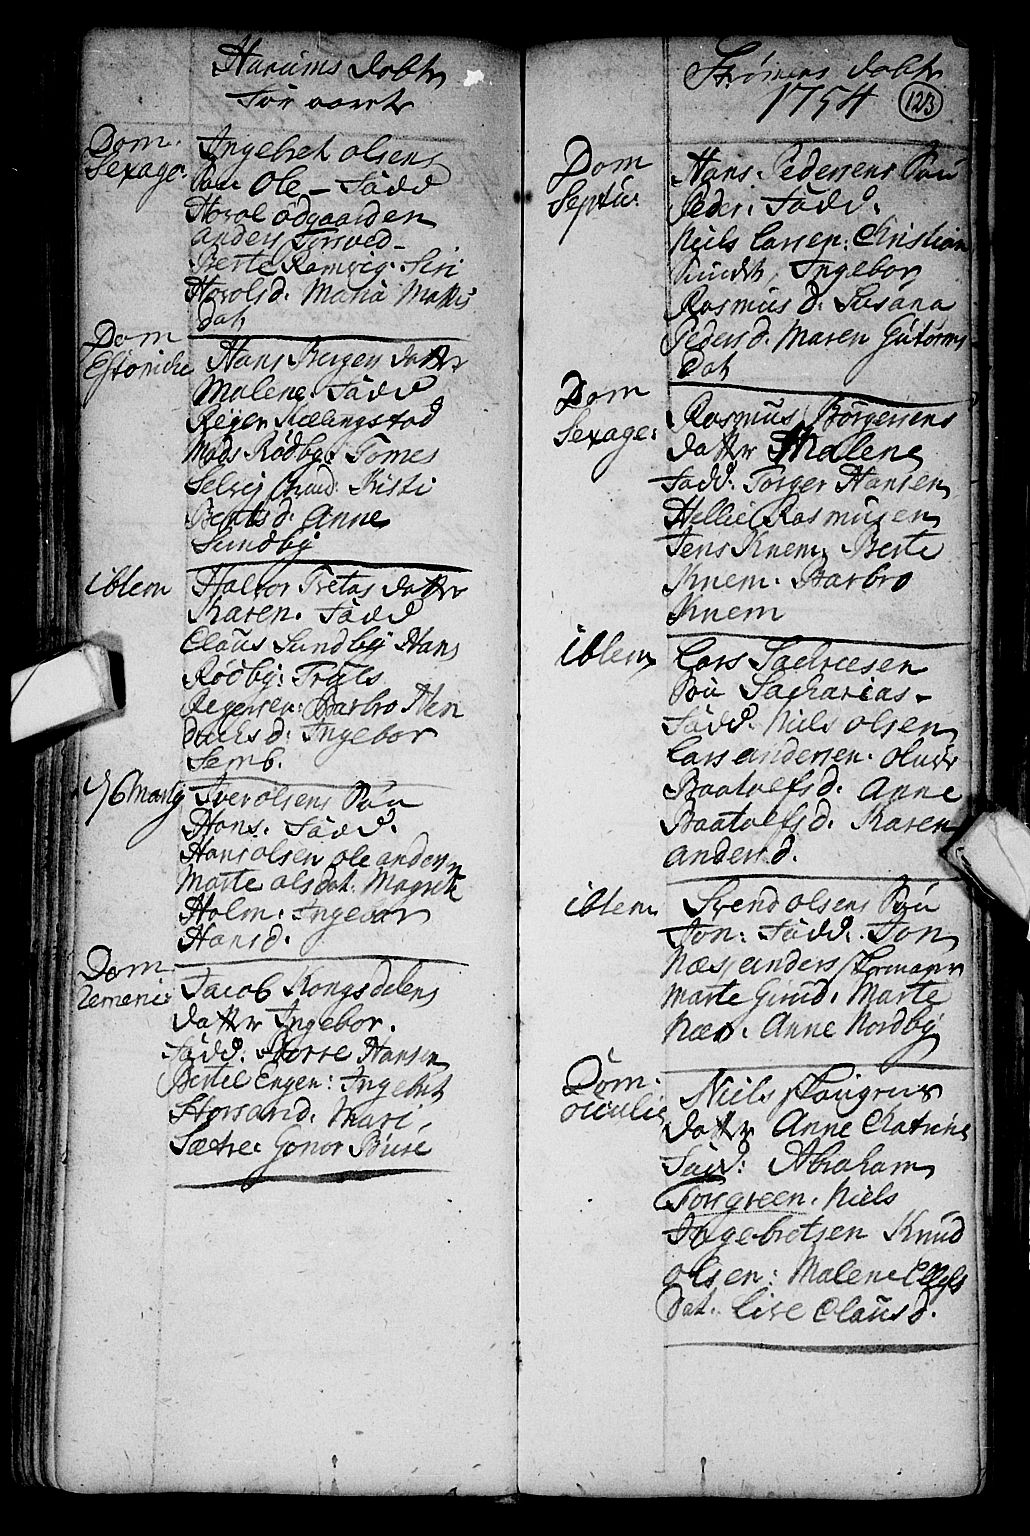 Hurums Dobte
for aaret
Dom.
Sexage:
Ingebret olsens
Søn Ole – Fadd
Hovol ødgaarden
anders Torsved –
Berte Ramvig. Siri
Hovolsd. Maria Mattis
dat
Dom
Estomihi
Hans Bergers datter
Malene. Fadd
Reier Kiælingstad
Mads Rødby. Tomes
Selvig Knud: Kirsti
Bentsd. Anne
Sundby
ibidem
Halvor Tveitas datter
Karen. Fadd
Claus Sundby Hans
Rødby: Trøls
Regersen: Barbro Hen
drichsd: Ingebor
Semb.
16 Marty
Iver olsens Søn
Hans. Fadd.
Hans olsen ole andersen
Marte olsdat. Magrete
Holm: Ingebor
Hansd.
Dom.
Remenis:
Jacob Kongsdelens
datter Ingebor.
Fadd. Hansen
Bertel Engen: Ingebret
Storsand. Mari
Sætre: Gonor Buse
Strømens Dobte
1754
123
Dom
Septu:
Hans. Pedersens Søn
Peder: Fadd.
Niels Larsen: Christian
Ingebor
Rasmus d. Susana
Peders d. Maren Gutorms
dat
Dom
Sexage:
Rasmus Børgersens
datter Malene
Fadd: Torger Hansen
Hellie Rasmusen
Jens Knem: Berte
Knem. Barbro
Knem
ibidem
Lars Sachrisen
Søn Sacharias –
Fadd. Niels olsen
Lars andersen. Oluf
Baatolfsd. Anne
Baatolfsd. Karen
andersd.
ibidem
Svend olsens Søn
Jon: Fadd. Jon
Næs, anders
Marte Girud. Marte
Næs. Anne Nordby
Dom.
oculi:
Niels
datter Anne Catrine
Fadd: Abraham
Torgreen. Niels
Ingebretsen Knud
olsen: Malene Ellefs
dat. Live Clausd.